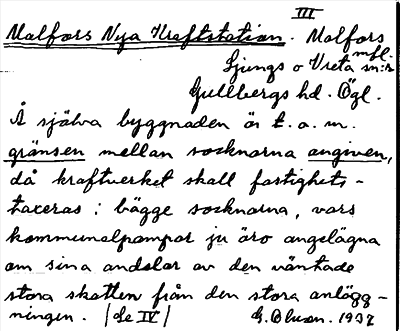 III
Malfors Nya Kraftstation. Malfors mfl.
Ljungs o Vreta sn:r
Gullbergs hd. Ögl.
Å själva byggnaden är t.o.m.
gränsen mellan socknarna angiven,
då kraftverket skall fastighets-
taxeras i bägge socknarna, vars
kommunalpampar ju äro angelägna
om sina andelar av den väntade
stora skatten från den stora anlägg-
ningen. (Se IV) G. Olsson. 1937